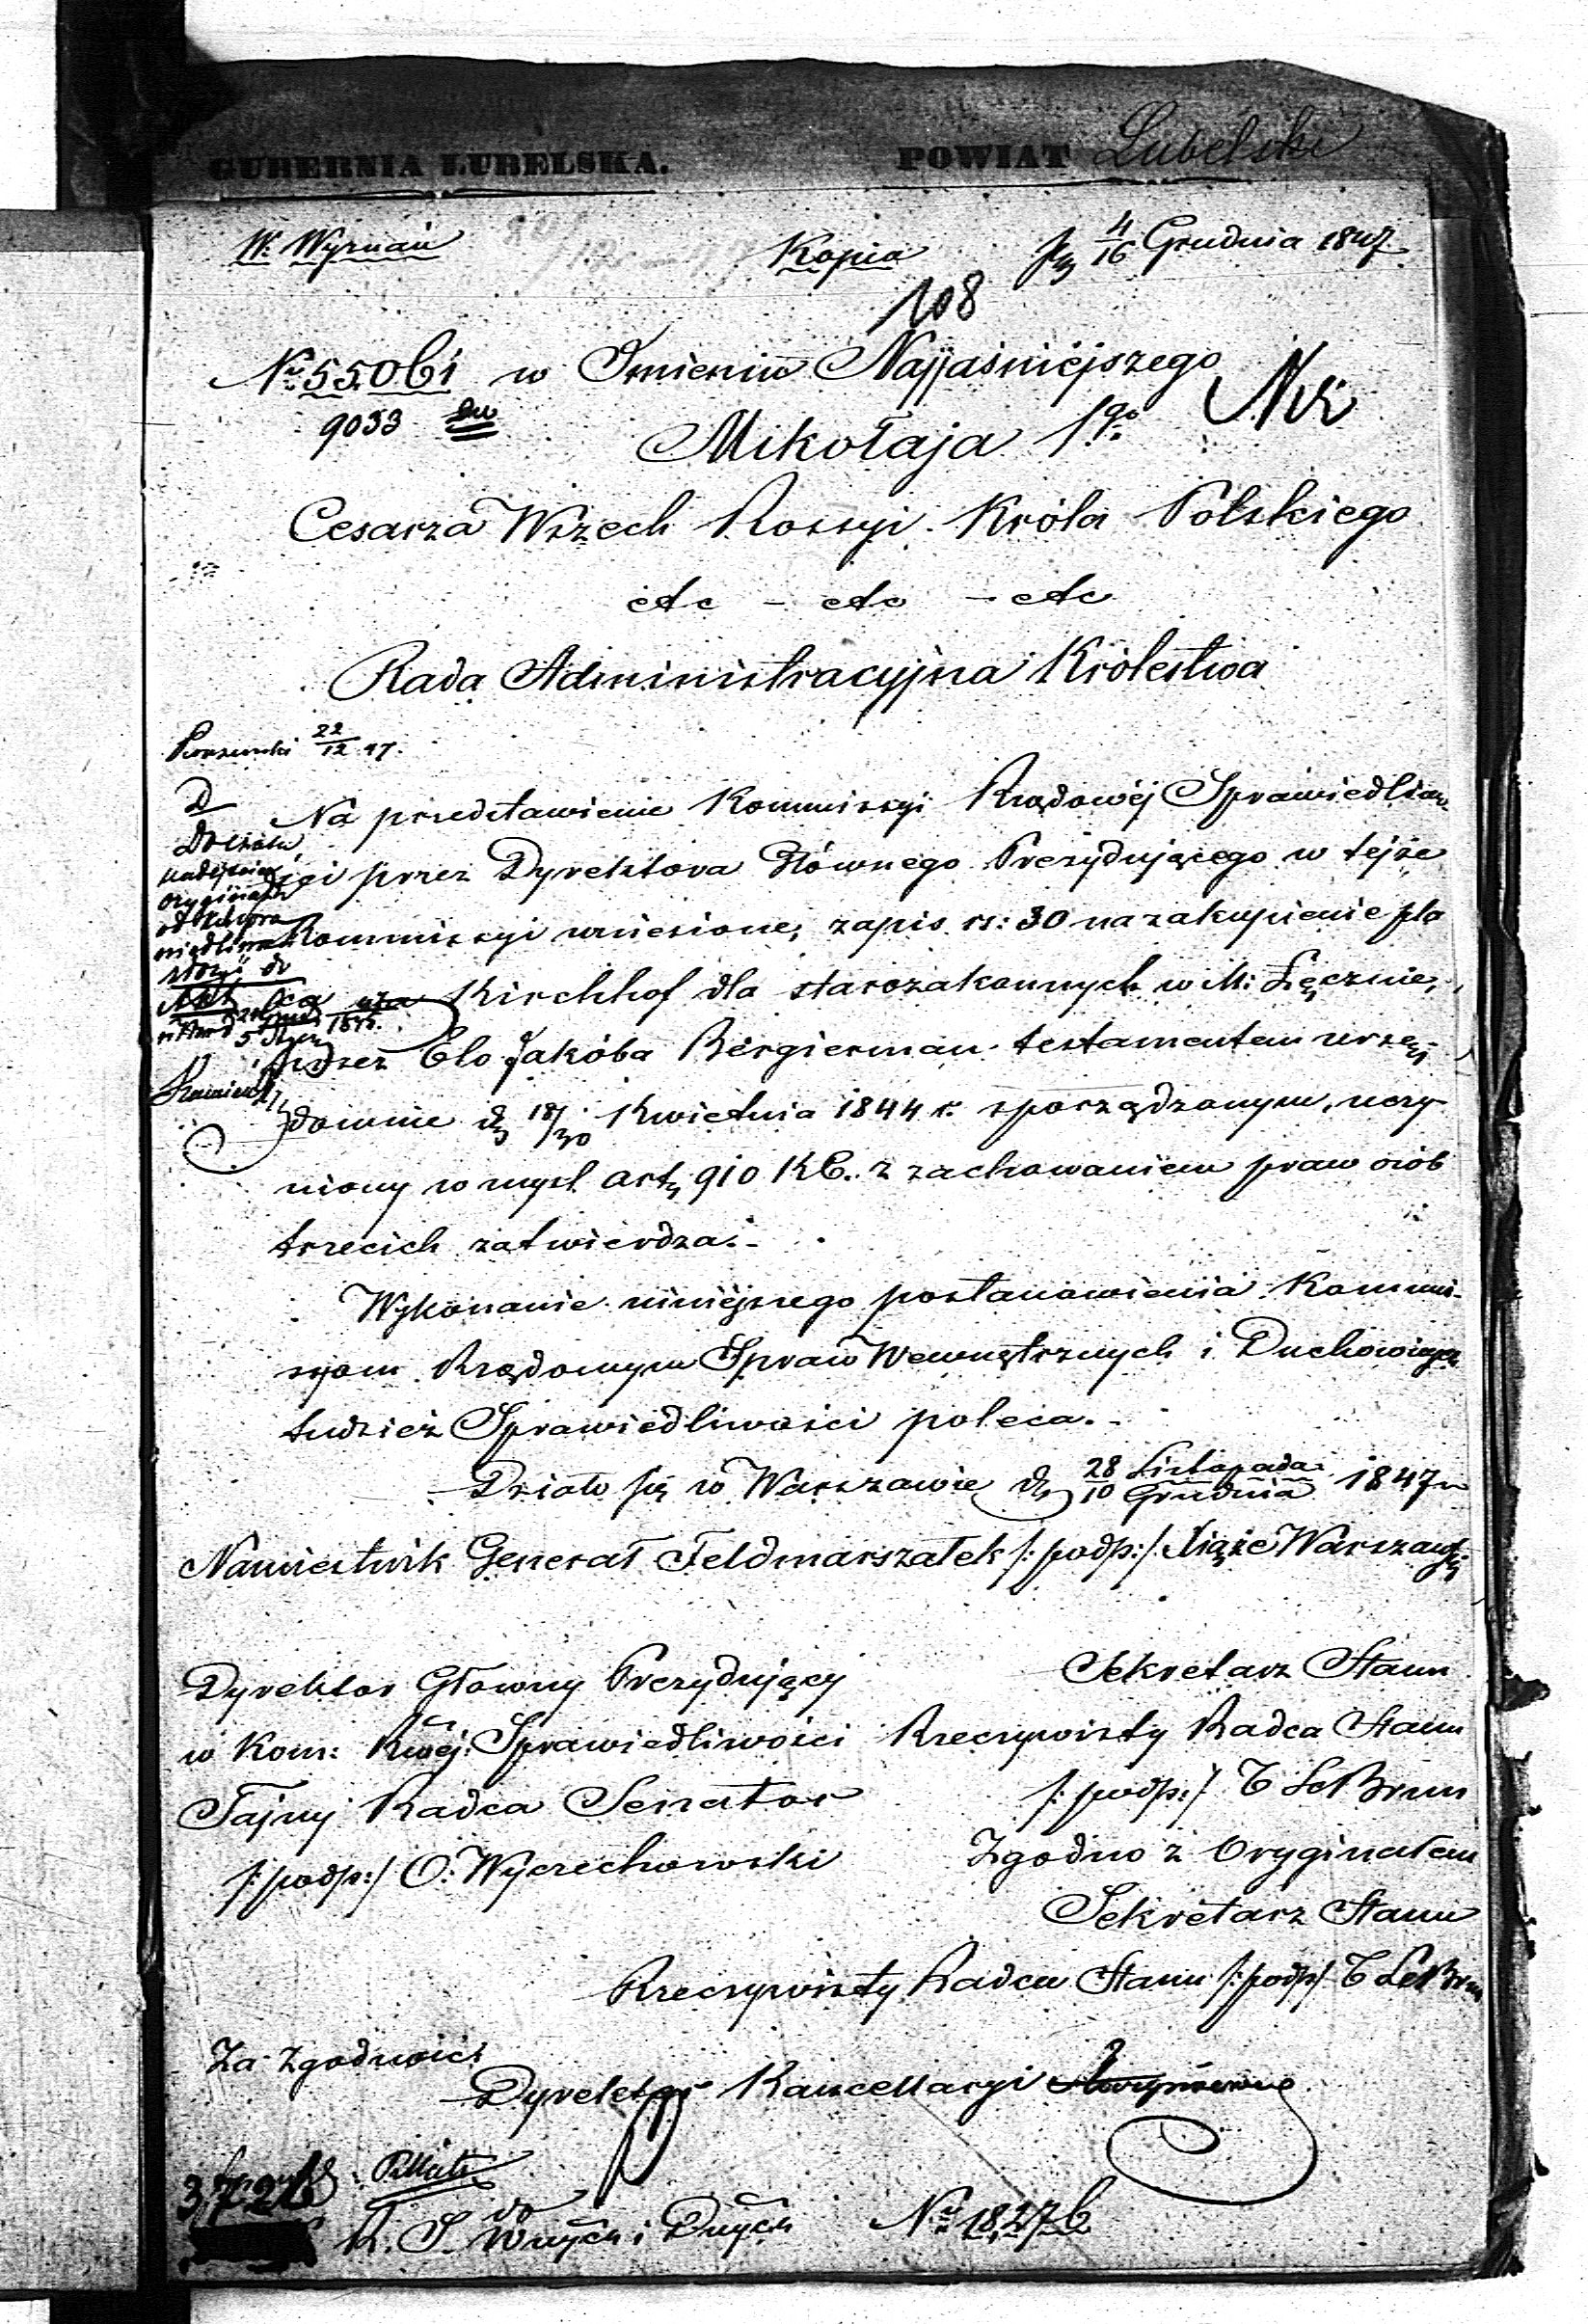 GUBERNIA LUBELSKA. POWIAT Lubelski
W. Wyznań Kopia 4/16 Grudnia 1847
108
No 55061 w Imieniu Najjaśniejszego
9033 Mikołaja 1go
Cesarza Wszech Rossyi Króla Polskiego
etc - etc - etc
Rada Administracyjna Królestwa
22/12 47.
Na przedstawienie Kommissyi Rządowéj Sprawiedliwo
ści przez Dyrektora Głównego Prezydującego w tejże
Kommissyi wniesione, zapis rs: 30 na zakupienie pla
Kirchhof dla starozakonnych w M: Łęcznie,
przez Elo Jakóba Bergierman testamentem urzę
downie d 18/30 Kwietnia 1844 r. sporządzonym, uczy
niony w mysl arty 910 KC. z zachowaniem praw osób
trzecich zatwierdza.-
Wykonanie niniéjszego postanowienia Kommis-
syom Rządowym Spraw Wewnętrznych i Duchownych
tudzież Sprawiedliwości poleca.-
Działo się w Warszawie d 28 Listopada/10 Grudnia 1847 r
Namiestnik Generał Feldmarszałek /:podp:/ Xiąże Warszawski
Dyrektor Głowny Prezydujący Sekretarz Stanu
w Kom: Rwéj: Sprawiedliwości Rzeczywisty Radca Stanu
Tajny Radca Senator /:podp:/ T LeBrun
/:podp:/ O: Wyczechowski Zgodno z Oryginałem
Sekretarz Stanu
Rzeczywisty Radca Stanu /:podp/ T LeBrun
Za Zgodność
Dyrektor Kancellaryi
do
K. S. Wnych i Dnych No 18,276